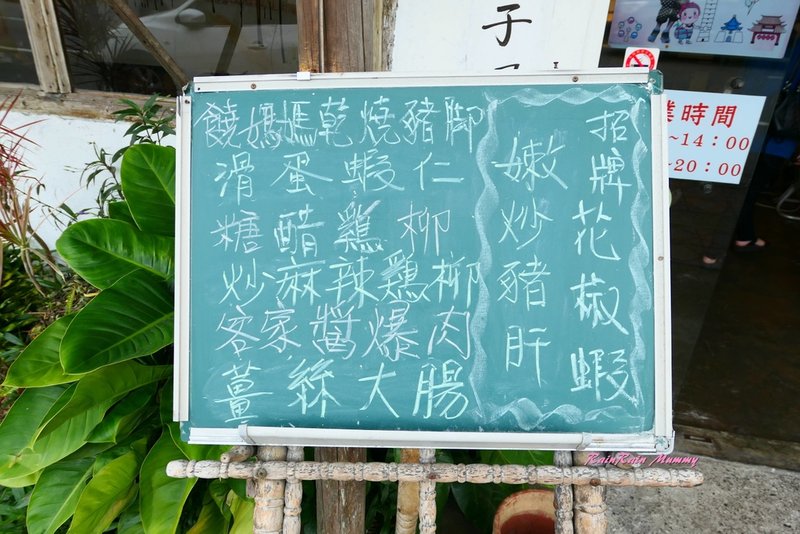 饒媽媽乾燒豬腳
滑蛋蝦仁
糖醋雞柳
炒麻辣雞柳
客家醬爆肉
薑絲大腸
招牌花椒蝦
嫩炒豬肝
子
業時間
~14：00
~20：00
RainRain Mummy